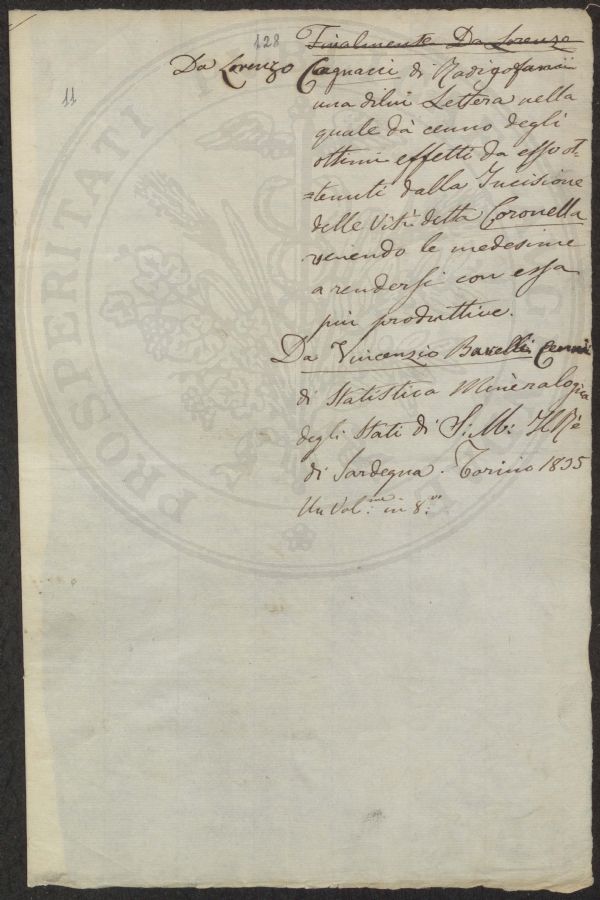 128
11
Finalmente Da Lorenzo
Da Lorenzo Cagnacci di Radigofani
una di lui Lettera nella
quale dà cenno degli
ottimi effetti da esso ot-
=tenuti dalla Incisione
delle Viti detta Coronella
venendo le medesime
a rendersi con essa
più produttive.
Da Vincenzio Barelli Cenni
di Statistica Mineralogica
degli Stati di S: M: Il Rè
di Sardegna. Torino 1835
Un Vol:me in 8:vo
PROSPERITATI